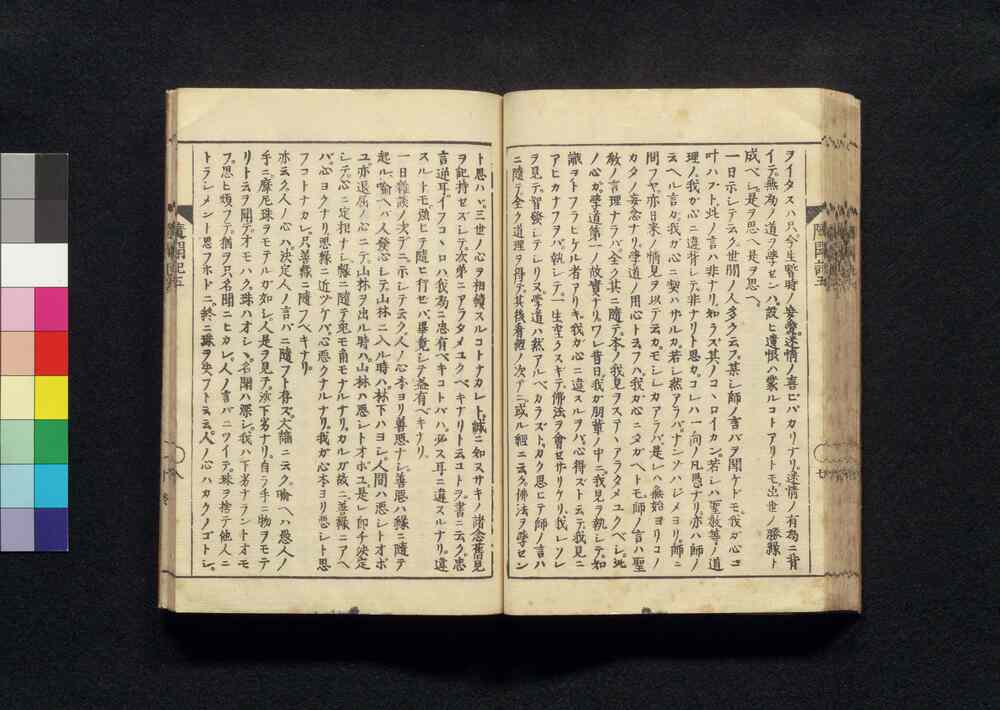 ヲイタスハ只今生暫時ノ妄愛迷情ノ喜ビバカリナリ迷情ノ有為ニ背
イテ無為ノ道ヲ學センハ設ヒ遺恨ハ蒙ルコトアリトモ出世ノ勝縁ト
成ベシ是ヲ思ヘ是ヲ思ヘ
一日示シテ云ク世間ノ人多ク云フ某シ師ノ言バヲ聞ケドモ我ガ心ニ
叶ハズト此ノ言ハ非ナリ知ラズ其ノコヽロイカン若シハ聖教等ノ道
理ノ我ガ心ニ違背シテ非ナリト思カコレハ一向ノ凡愚ナリ亦ハ師ノ
云ヘル言ガ我ガ心ニ契ハザルカ若シ然アラバナンゾハジメヨリ師ニ
問フヤ亦日来ノ情見ヲ以テ云カモシシカアラバ是レハ無始ヨリコノ
カタノ妄念ナリ學道ノ用心ト云フハ我ガ心ニタガヘトモ師ノ言ハ聖
教ノ言理ナラバ全ク其ニ隨テ本ノ我見ヲステヽアラタメユクベシ此
ノ心ガ學道第一ノ故實ナリワレ昔日我ガ朋輩ノ中ニ我見ヲ執シテ知
識ヲトフラヒケル者アリキ我ガ心ニ違スルヲバ心得ズト云テ我見ニ
アヒカナフヲバ執シテ一生空クスギテ佛法ヲ會セザリケリ我レソレ
ヲ見テ智發シテシリヌ學道ハ然アルベカラズトカク思ヒテ師ノ言ハ
ニ隨テ全ク道理ヲ得テ其後看經ノ次デニ或ル經ニ云ク佛法ヲ學セン
ト思ハヾ三世ノ心ヲ相續スルコトナカレト誠ニ知ヌサキノ諸念舊見
ヲ記持セズシテ次第ニアラタメユクベキナリト云コトヲ書ニ云ク忠
言逆耳イフコヽロハ我為ニ忠有ベキコトバハ必ズ耳ニ違スルナリ違
スルトモ強ヒテ隨ヒ行セバ畢竟シテ益有ベキナリ
一日雜談ノ次デニ示シテ云ク人ノ心本ヨリ善悪ナシ善悪ハ縁ニ隨テ
起ル喩ヘバ人發心シテ山林ニ入ル時ハ林下ハヨシ人間ハ悪シトオボ
ユ亦退屈ノ心ニテ山林ヲ出ル時ハ山林ハ悪シトオボユ是レ即チ決定
シテ心ニ定相ナシ縁ニ隨テ兎モ角モナルナリカルガ故ニ善縁ニアヘ
バ心ヨクナリ悪縁ニ近ヅケバ心悪クナルナリ我ガ心本ヨリ悪シト思
フコトナカレ只善縁ニ隨フベキナリ
亦云ク人ノ心ハ決定人ノ言バニ隨フト存ズ大論ニ云ク喩ヘハ愚人ノ
手ニ摩尼珠ヲモテルガ如シ人是ヲ見テ汝下劣ナリ自ラ手ニ物ヲモテ
リト云ヲ聞テオモハク珠ハオシヽ名聞ハ深シ我ハ下劣ナラントオモ
フ思ヒ煩フテ猶ヲ只名聞ニヒカレ人ノ言バニツイテ珠ヲ捨テ他人ニ
トラシメント思フホトニ終ニ珠ヲ失フト云云人ノ心ハカクノゴトシ
隨聞記五
隨聞記五
七
八